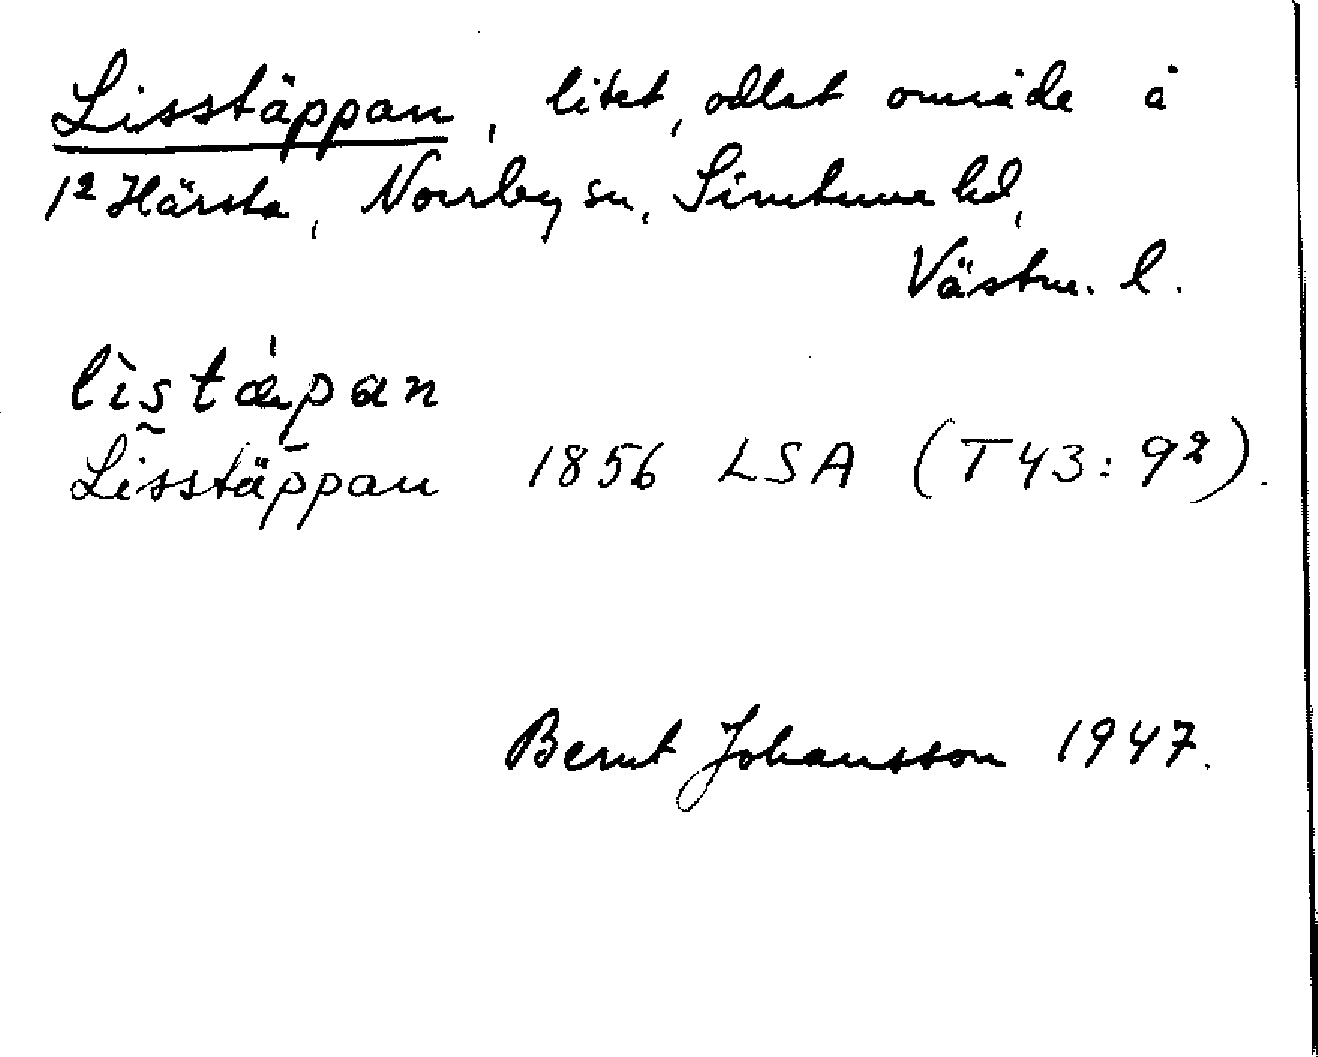 Lisstäppan, litet, odlat område å
1² Härsta, Norrby sn, Simtuna hd,
Västm. l.
lìstæ̀pan
Lisstäppan 1856 LSA (T43:9²).
Bernt Johansson 1947.